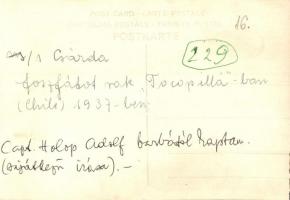 POST CARD - CARTE POSTALE
POSTKARTE
16.
229
s/s Csárda
foszfátot rak "Tocopilla"-ban
(Chile) 1937-ben
Capt. Holop Adolf barától kaptam.
(sajátkezű írása). -